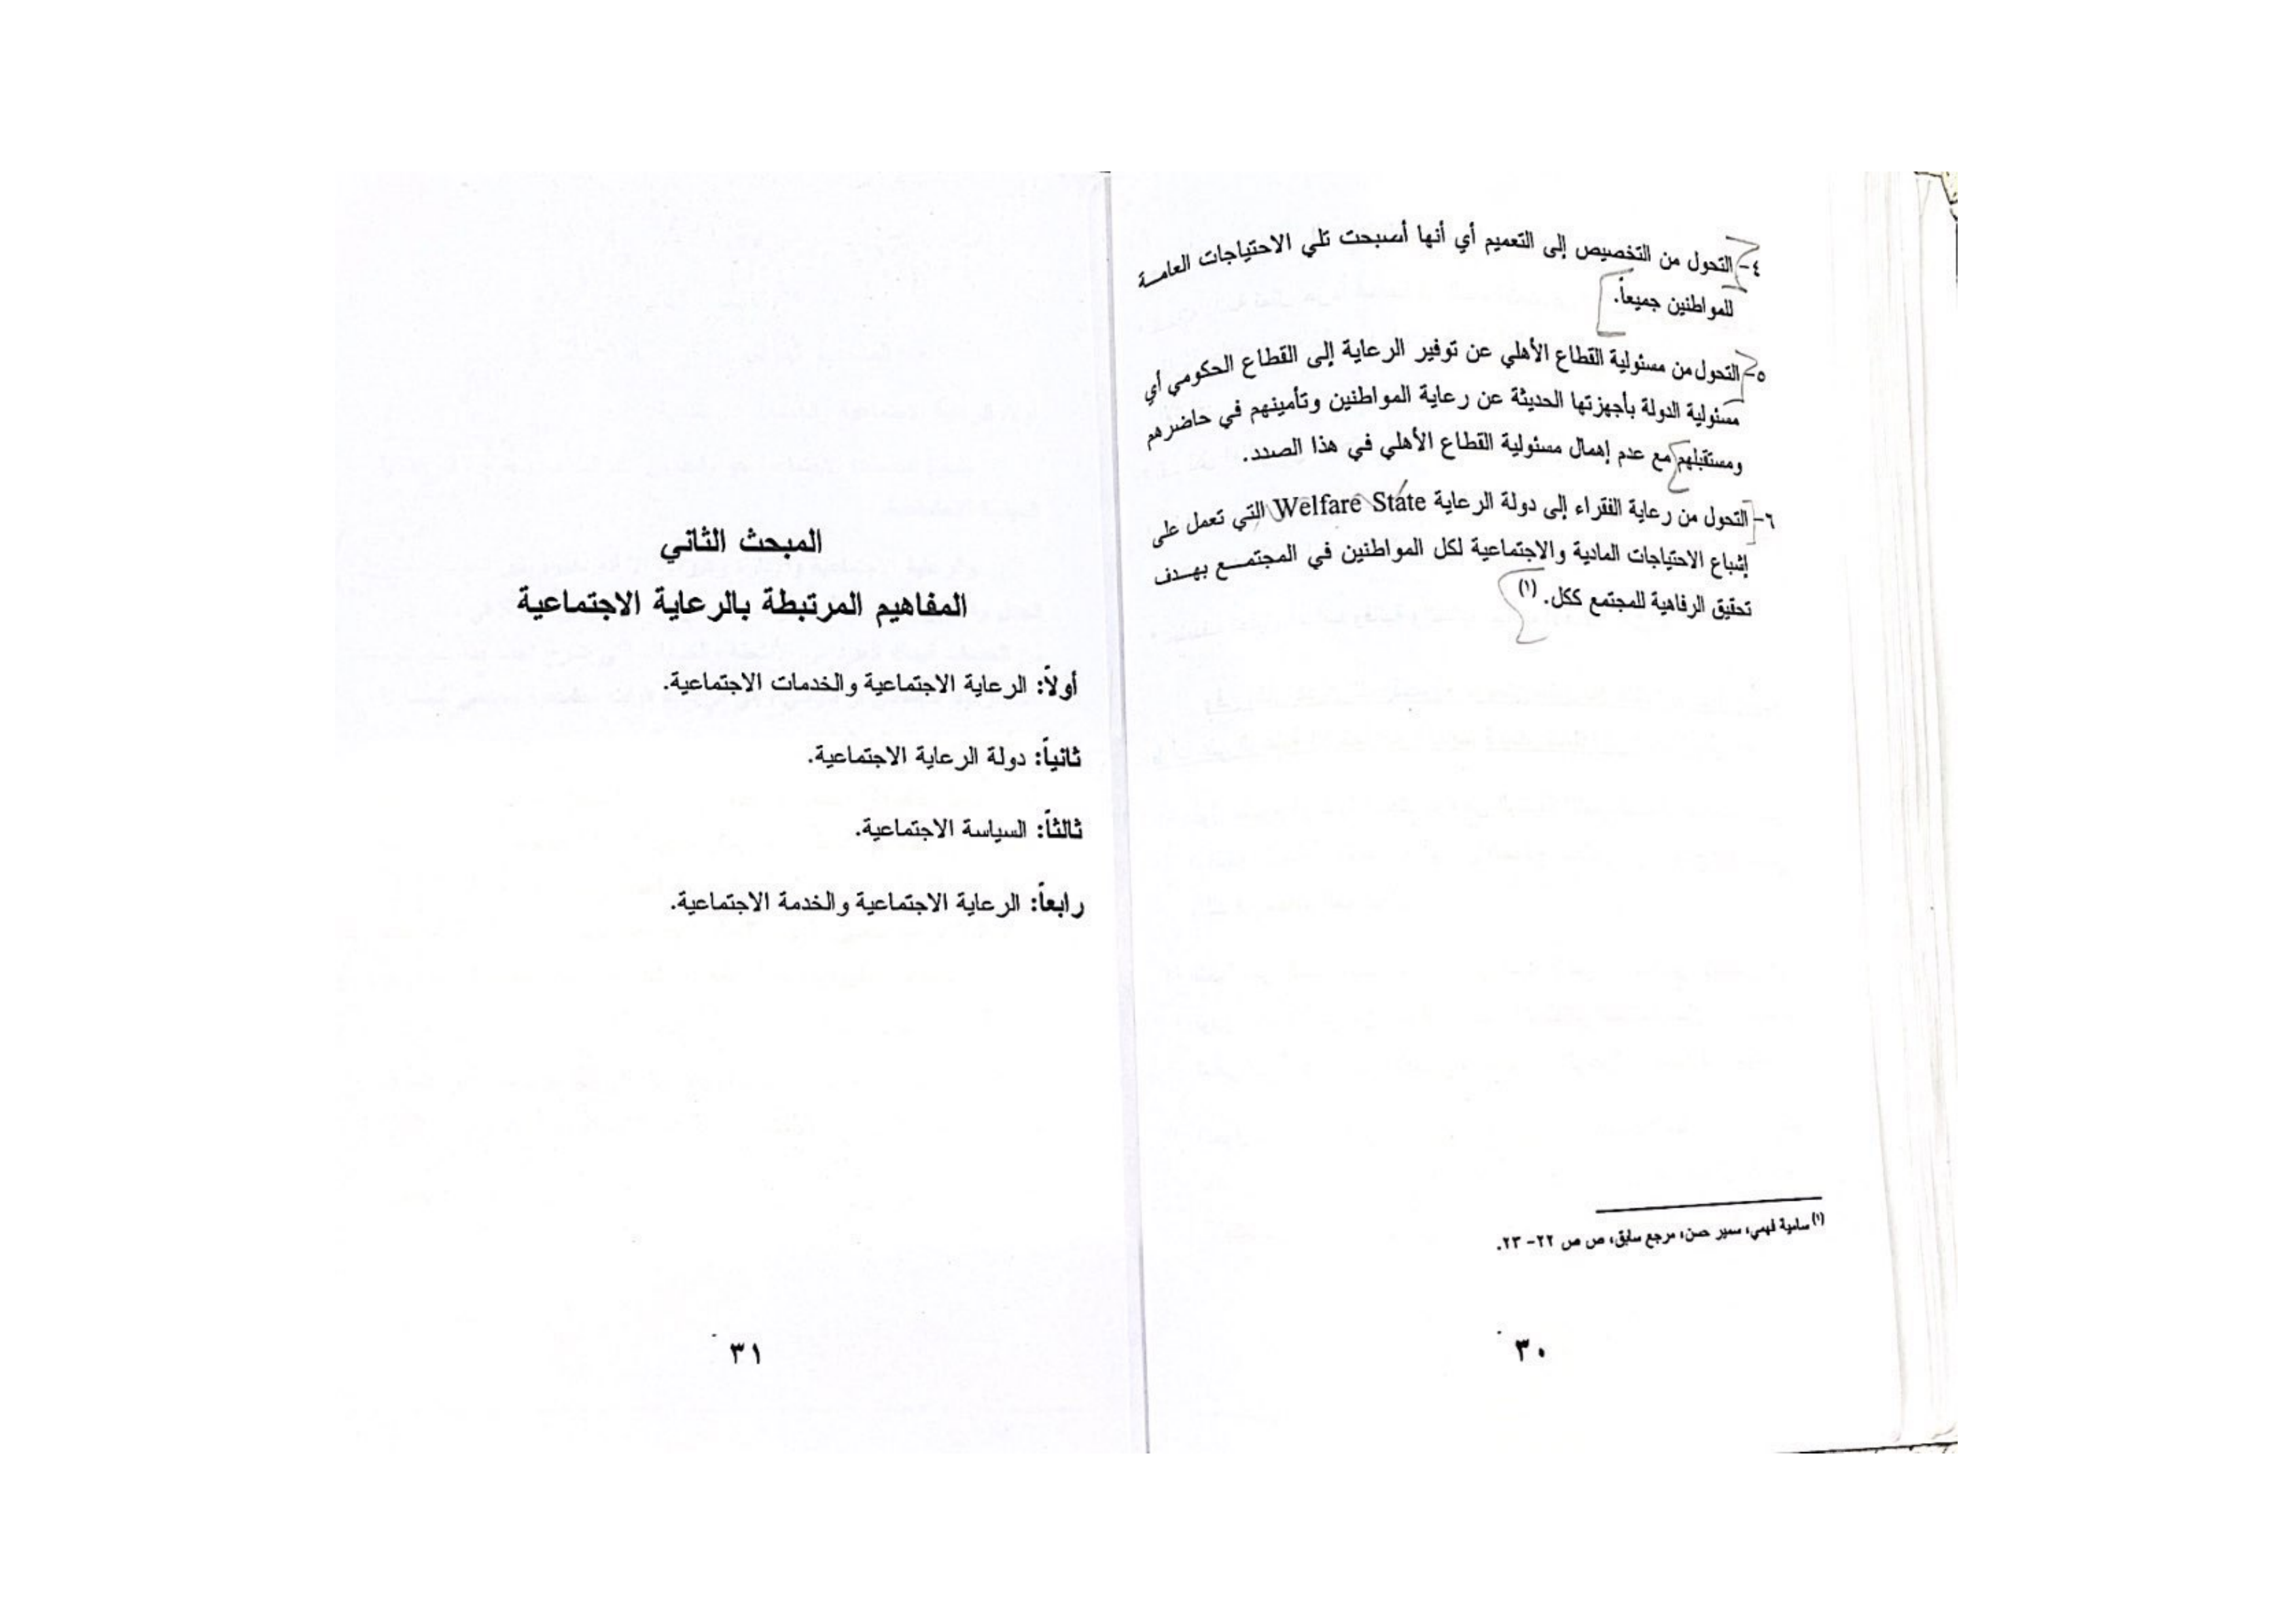 ٤- التحول من التخصيص إلى التعميم أي أنها أسبحت تلي الاحتياجات العامة
للمواطنين جميعاً.
٥- التحول من مسئولية القطاع الأهلي عن توفير الرعاية إلى القطاع الحكومي أي
مسئولية الدولة بأجهزتها الحديثة عن رعاية المواطنين وتأمينهم في حاضرهم
ومستقبلهم مع عدم إهمال مسئولية القطاع الأهلي في هذا الصدد.
٦- التحول من رعاية الفقراء إلى دولة الرعاية Welfare State التي تعمل على
إشباع الاحتياجات المادية والاجتماعية لكل المواطنين في المجتمع بهدف
تحقيق الرفاهية للمجتمع ككل. (١)
(١) سامية فهمي، سمير حسن، مرجع سابق، ص ص ٢٢- ٢٣.
٣٠
المبحث الثاني
المفاهيم المرتبطة بالرعاية الاجتماعية
أولاً: الرعاية الاجتماعية والخدمات الاجتماعية.
ثانياً: دولة الرعاية الاجتماعية.
ثالثاً: السياسة الاجتماعية.
رابعاً: الرعاية الاجتماعية والخدمة الاجتماعية.
٣١